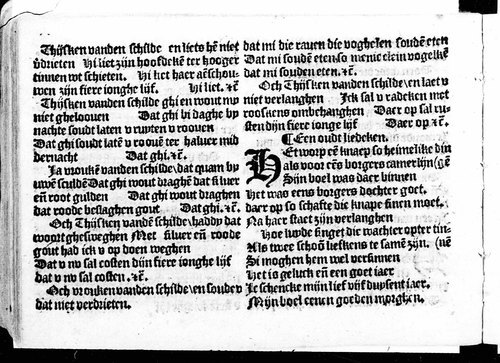 Thijsken vanden schilde en lieto hē niet
v̄drieten Hi liet zijn hoofdekē ter hooger
tinnen wt schieten. Hi liet haer aēschou-
wen zijn fiere ionghe lijf. Hi liet. ⁊c̄.
Thijsken vanden schilde ghi en wout my
niet gheloouen Dat ghi bi daghe by
nachte soudt laten v ruyten v roouen
Dat ghi soudt latē v roouē ter haluer mid
dernacht Dat ghi. ⁊c̄.
Ja vrouke vanden schilde/dat quam by
uwē sculdē Dat ghi wout draghē dat siluer
eñ root gulden Dat ghi wout draghen
dat roode beslaghen gout Dat ghi. ⁊c̄.
Och Thijsken vandē schilde/haddy dat
woort ghesweghen Met siluer eñ roode
gout had ick v op doen weghen
Dat v nv sal costen dijn fiere ionghe lijf
dat v nv sal costen. ⁊c̄.
Och vrouken vanden schilde/en soudev
dat niet verdrieten.
dat mi die rauen die voghelen soudē eten
Dat mi soudē eten so menich clein vogelkē
dat mi souden eten. ⁊c̄.
Och Thijsken vanden schilde/en laet v
niet verlanghen Ick sal v radeken met
rooskens ombehanghen Daer op sal ru-
sten dijn fiere ionge lijf Daer op. ⁊c̄.
¶ Een oudt liedeken.
HEt worp eē knaep so heimelike din
als voor eēs borgers camerlijn (gē
Sijn boel was daer binnen
Het was eens borgers dochter goet.
daer op so schafte die knape sinen moet.
Na haer staet zijn verlanghen
Hoe lude singet die wachter opter tin-
Als twee schoō liefkens te samē zijn. (nē
Si moghen hem wel versinnen
Het is geluck eñ een goet iaer
Je schencke mijn lief vijf duysent iaer.
Mijn boel eenen goeden morghen.